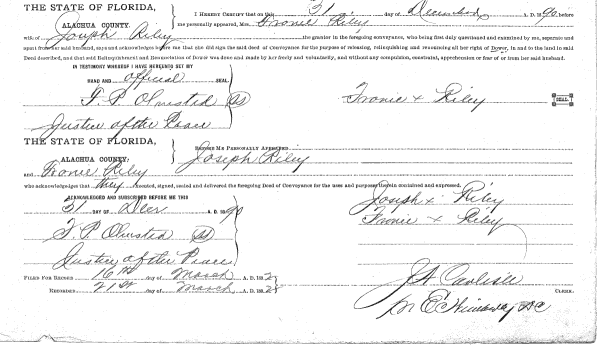 THE STATE OF FLORIDA,
ALACHUA COUNTY.
I HEREBY CERTIFY that on this 31 day of December A. D. 1890, before
me personally appeared, Mrs. Fronie Riley
wife of Joseph Riley the grantor in the foregoing conveyance, who being first duly questioned and examined by me, separate and
apart from her said husband, says and acknowledges before me that she did sign the said deed of Conveyance for the purpose of releasing, relinquishing and renouncing all her right of Dower, in and to the land in said
Deed described, and that said Relinquishment and Renunciation of Dower was done and made by her freely and voluntarily, and without any compulsion, constraint, apprehension or fear of or from her said husband.
IN TESTIMONY WHEREOF I HAVE HEREUNTO SET MY
HAND AND official SEAL
F. P. Olmsted
Fronie x Riley SEAL.
Justice of the Peace
THE STATE OF FLORIDA,
ALACHUA COUNTY:
BEFORE ME PERSONALLY APPEARED Joseph Riley
and Fronie Riley
who acknowledges that they executed, signed, sealed and delivered the foregoing Deed of Conveyance for the uses and purposes therein contained and expressed.
ACKNOWLEDGED AND SUBSCRIBED BEFORE ME THIS
31 DAY OF Decr A. D. 1890
Joseph x Riley
Fronie x Riley
F. P. Olmsted
Justice of the Peace
FILED FOR RECORD 16th day of March A. D. 189
RECORDED 21st day of March A. D. 189
CLERK.
DC